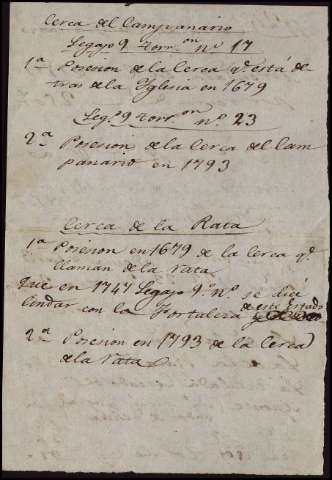 Cerca del Campanario
Legajo 9 Torr.on nº 17
1ª Posesion de la Cerca q.e está de-
tras de la Yglesia en 1679
Leg.º 9 Torr.on nº. 23
2ª Posesion de la Cerca del Cam
panario en 1793
Cerca de la Rata
1ª Posesion en 1679 de la Cerca q.e
llaman de la rata
que en 1747 Legajo 9.º nº. se dice
de este Estado
lindar con la Fortaleza
2ª Posesion en 1793 de la Cerca
de la rata